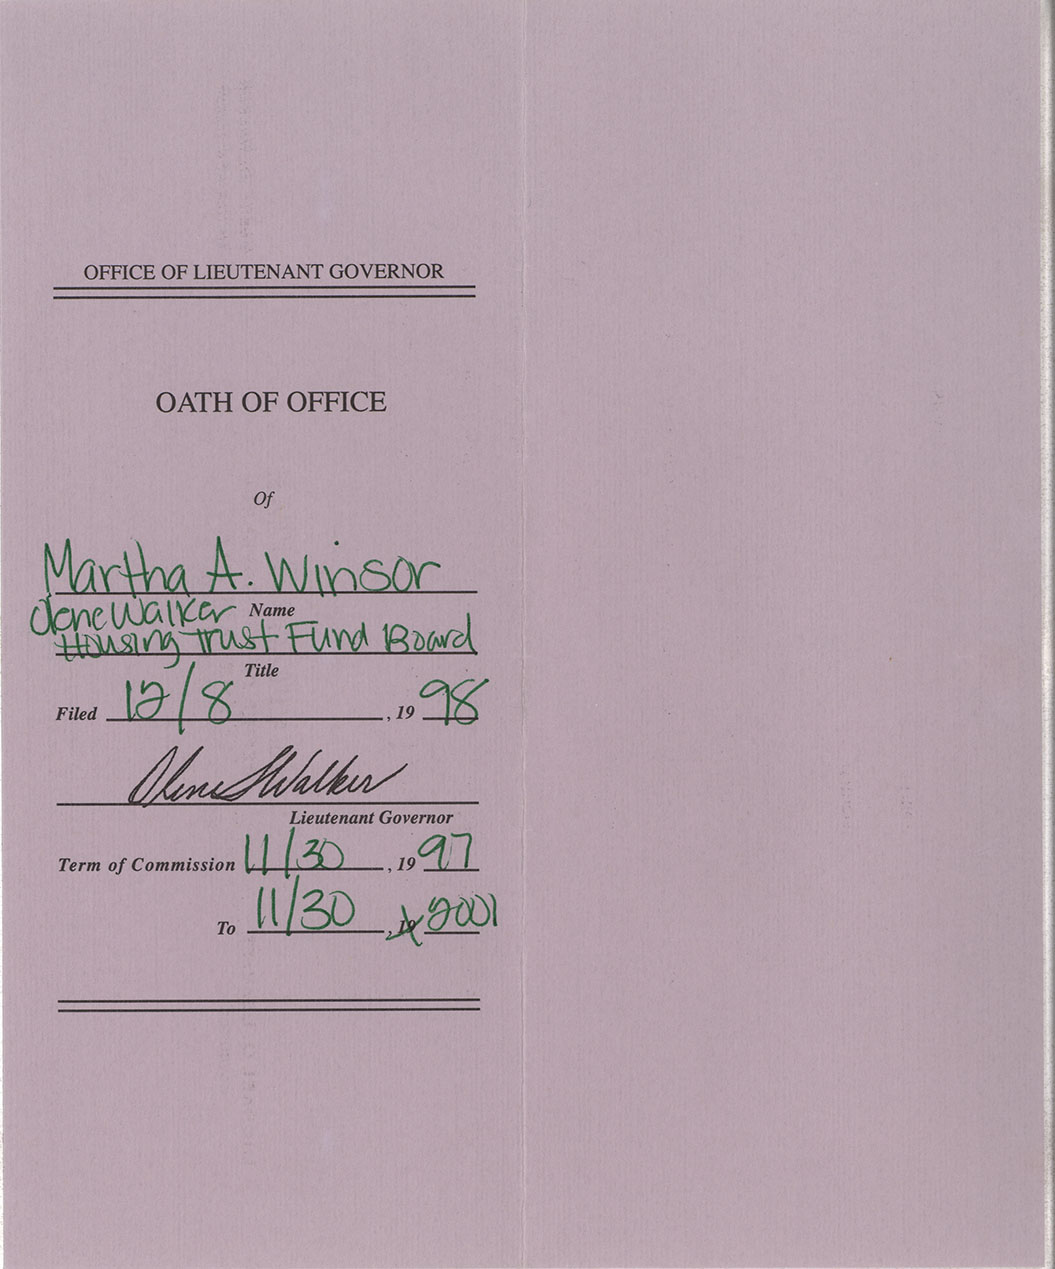 OFFICE OF LIEUTENANT GOVERNOR
OATH OF OFFICE
Of
Martha A. Winsor
Name
Olene Walker
Housing Trust Fund Board
Title
Filed 12/8, 1998
Olene S Walker
Lieutenant Governor
Term of Commission 11/30, 1997
To 11/30, 19 2001